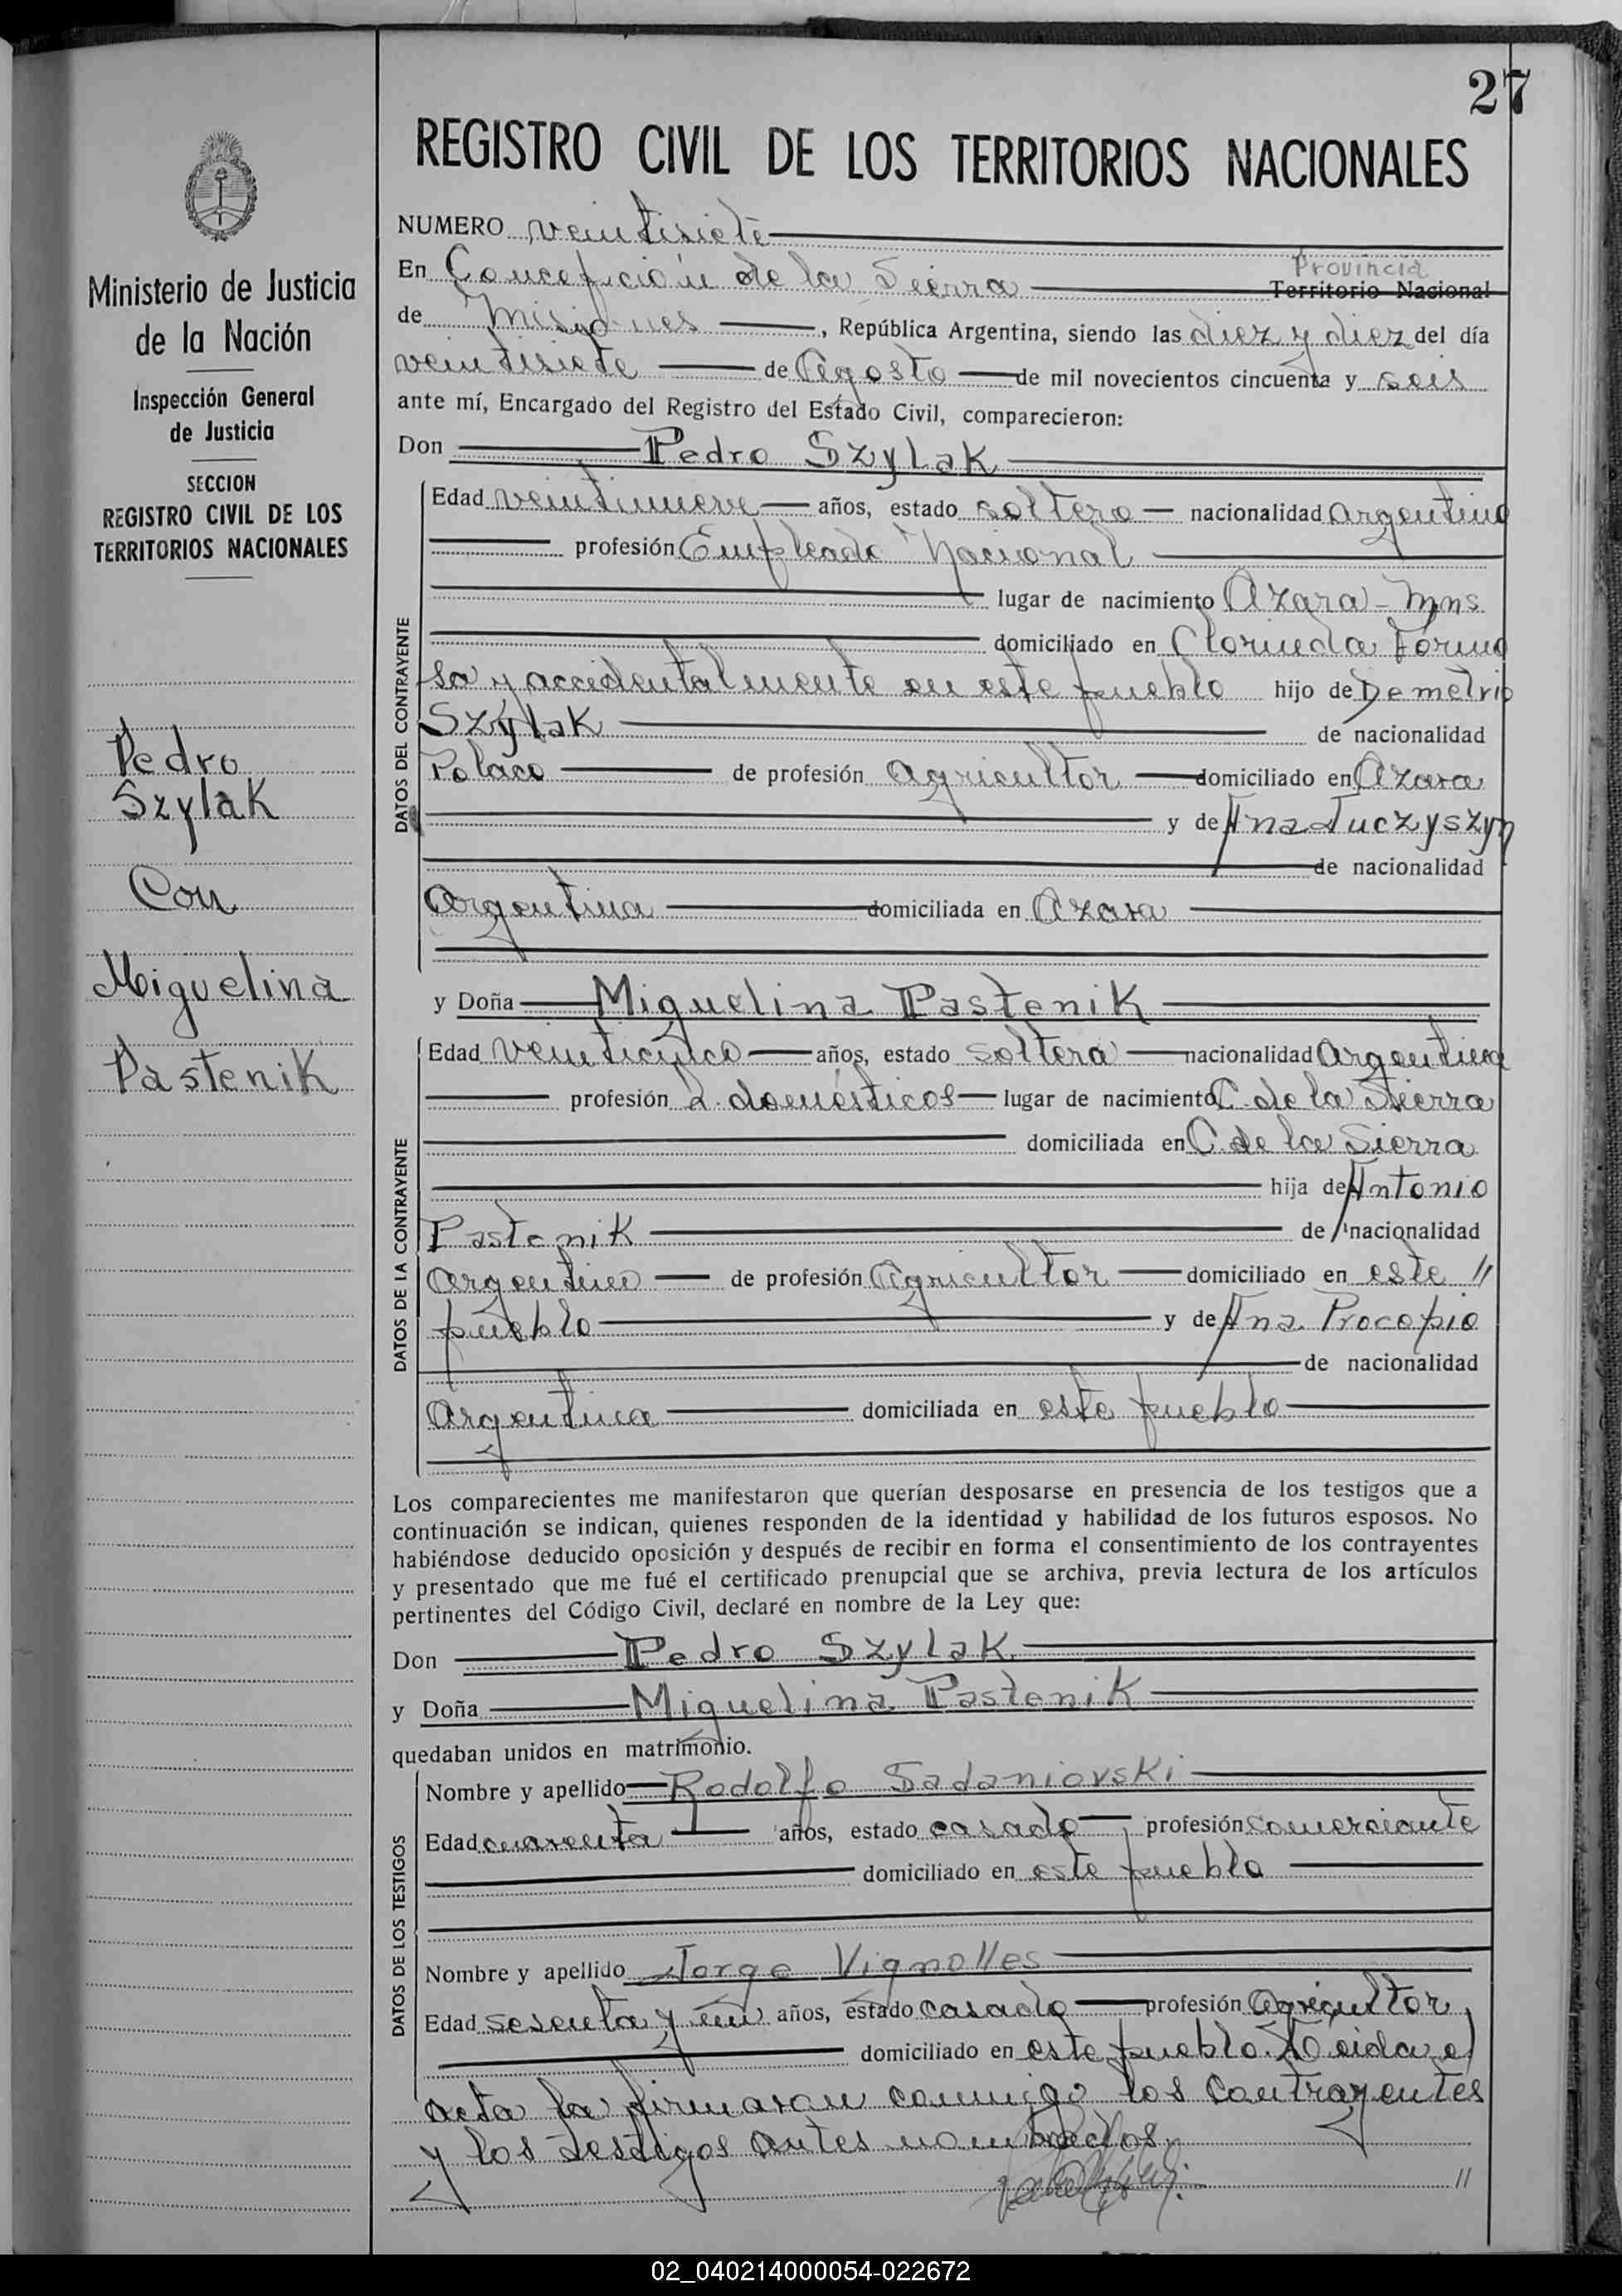 27
REGISTRO CIVIL DE LOS TERRITORIOS NACIONALES
Ministerio de Justicia
de la Nación
Inspección General
de Justicia
SECCION
REGISTRO CIVIL DE LOS
TERRITORIOS NACIONALES
Pedro
Szylak
Con
Miguelina
Pastenik
NUMERO veintisiete
En Concepción de la Sierra Provincia Territorio Nacional
de Misiones, República Argentina, siendo las diez y diez del día
veintisiete de Agosto de mil novecientos cincuenta y seis
ante mí, Encargado del Registro del Estado Civil, comparecieron:
Don Pedro Szylak
DATOS DEL CONTRAYENTE
Edad veintinueve años, estado soltero nacionalidad argentino
profesión Empleado Nacional
lugar de nacimiento Azara - Mns
domiciliado en Clorinda Formo
sa y accidentalmente en este pueblo hijo de Demetrio
Szylak de nacionalidad
Polaco de profesión agricultor domiciliado en Azara
y de Ana Tuczyszyn
de nacionalidad
Argentina domiciliada en Azara
y Doña Miguelina Pastenik
DATOS DE LA CONTRAYENTE
Edad veinticinco años, estado soltera nacionalidad argentina
profesión L. domésticos lugar de nacimiento C. de la Sierra
domiciliada en C. de la Sierra
hija de Antonio
Pastenik de nacionalidad
argentino de profesión Agricultor domiciliado en este //
pueblo y de Ana Procopio
de nacionalidad
Argentina domiciliada en este pueblo
Los comparecientes me manifestaron que querían desposarse en presencia de los testigos que a
continuación se indican, quienes responden de la identidad y habilidad de los futuros esposos. No
habiéndose deducido oposición y después de recibir en forma el consentimiento de los contrayentes
y presentado que me fué el certificado prenupcial que se archiva, previa lectura de los artículos
pertinentes del Código Civil, declaré en nombre de la Ley que:
Don Pedro Szylak
y Doña Miguelina Pastenik
quedaban unidos en matrimonio.
DATOS DE LOS TESTIGOS
Nombre y apellido Rodolfo Sadaniovski
Edad cuarenta años, estado casado profesión comerciante
domiciliado en este pueblo
Nombre y apellido Jorge Vignolles
Edad sesenta y un años, estado casado profesión Agricultor
domiciliado en este pueblo. Leida el
acta la firmaran conmigo los contrayentes
y los testigos antes nombrados.
//
02_040214000054-022672